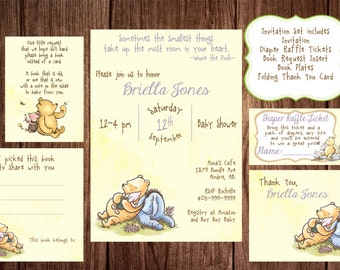 One little request
that we hope isn't hard
please bring a book
instead of a card
A book that is old,
or one that is new
with a note on the inside
to baby from you
Sometimes the smallest things
take up the most room in your heart.
~Winnie the Pooh~
Please join us to honor
Briella Jones
12-4 pm
Saturday
12th
September
Baby Shower
Anna's Cafe
1879 Bundle Ave
Andre, AR.
RSVP Richelle
Registry at Amazon
and Buy Buy Baby
Invitation Set includes
Invitation
Diaper Raffle Tickets
Book Request Insert
Book Plates
Folding Thank You Card
Diaper Raffle Ticket
Bring this ticket and
a pack of diapers, any size
and you'll be entered to
win a great prize!
Name
picked this book
to share with you
This book belongs to:
Thank You,
Briella Jones